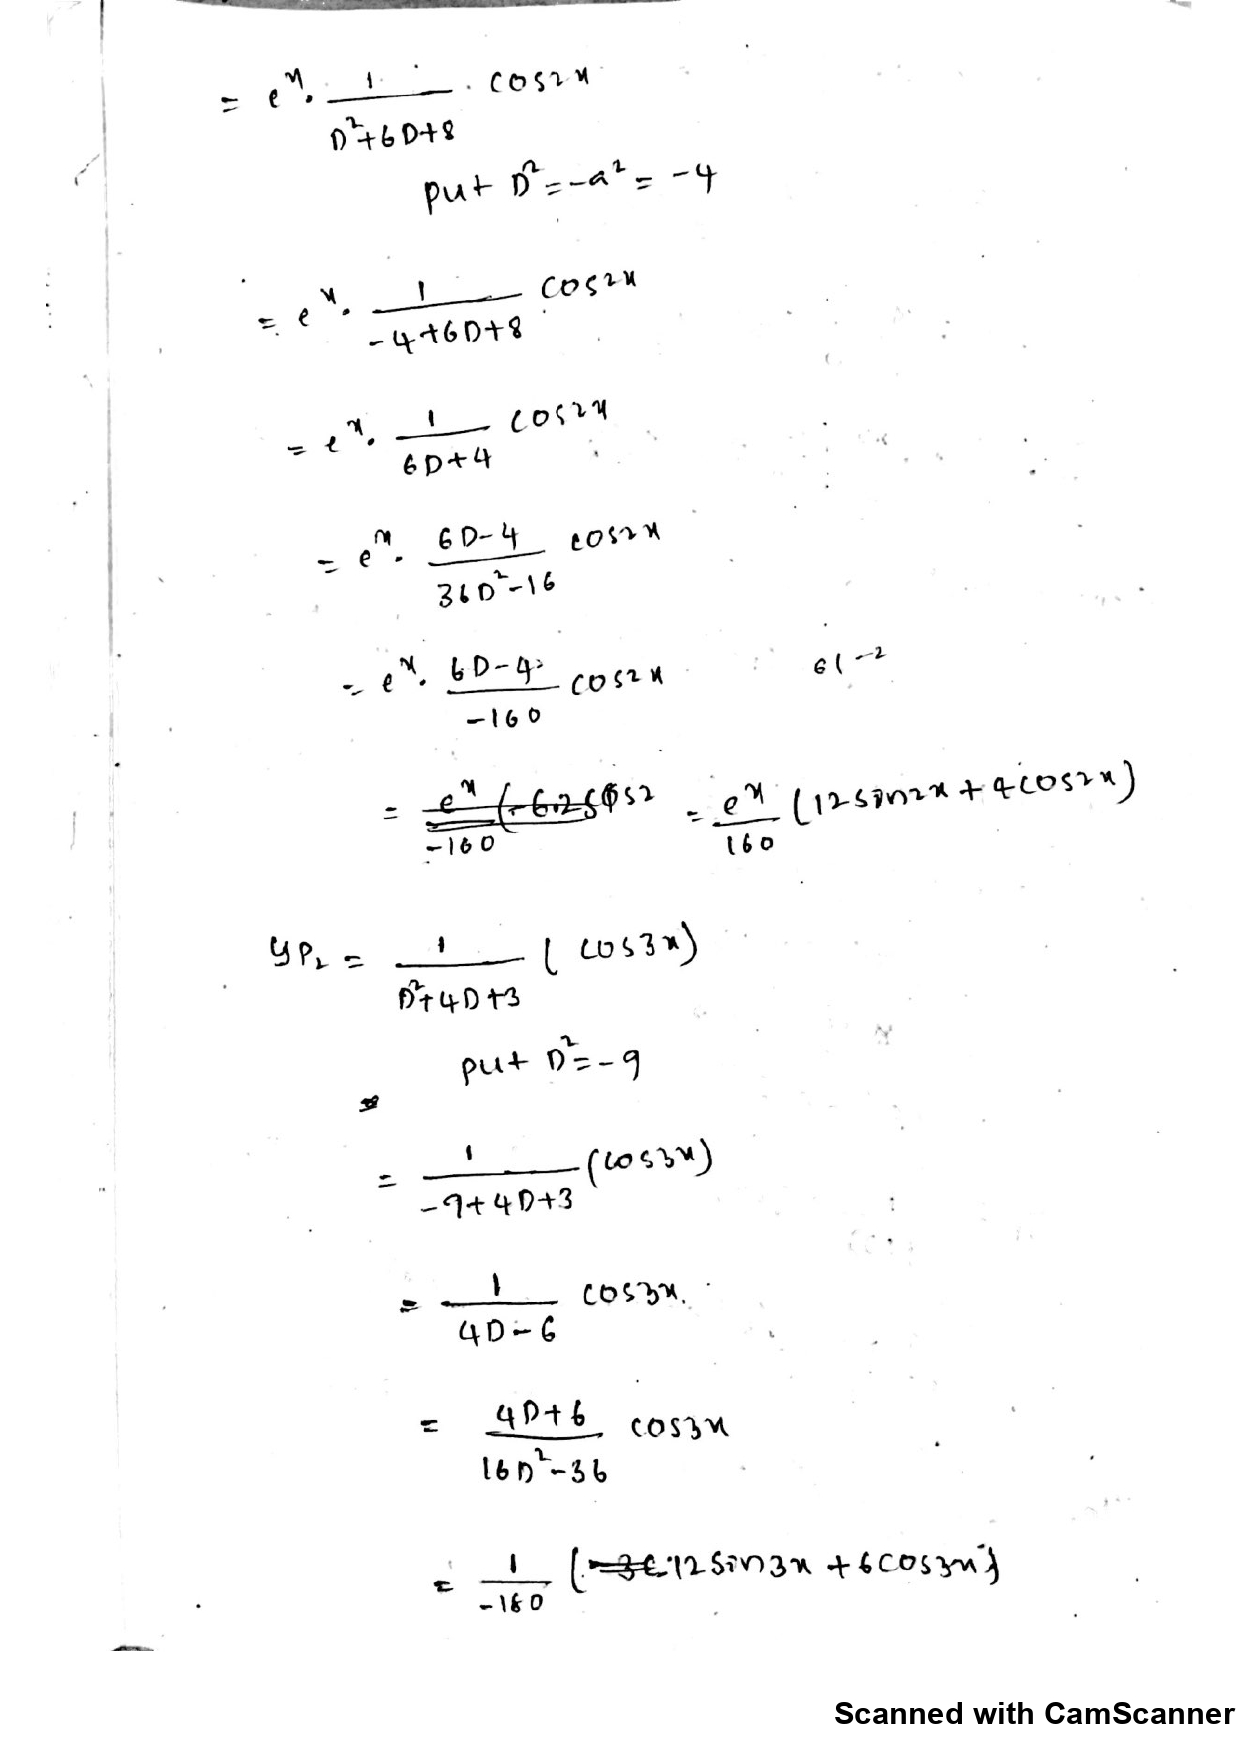 = e^x · 1/(D²+6D+8) · cos2x
put D² = -a² = -4
= e^x · 1/(-4+6D+8) cos2x
= e^x · 1/(6D+4) cos2x
= e^x · (6D-4)/(36D²-16) cos2x
= e^x · (6D-4)/(-160) cos2x 6(-2
= e^x/(-160) = e^x/160 (12 sin2x + 4 cos2x)
yp₂ = 1/(D²+4D+3) (cos3x)
put D² = -9
= 1/(-9+4D+3) (cos3x)
= 1/(4D-6) cos3x.
= (4D+6)/(16D²-36) cos3x
= 1/(-180) (-12 sin3x + 6cos3x)
Scanned with CamScanner